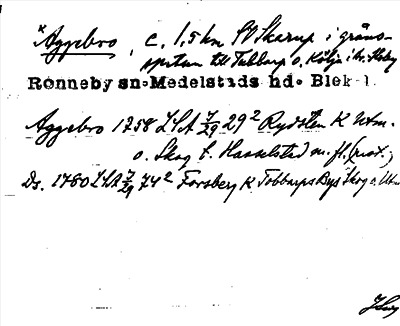 *Aggebro, c. 1.5 km SV Skarup i gräns-
spetsen till Tubbarp o. Kölja i hr. Hoby
Ronneby sn. Medelstads hd. Blek l.
Aggebro 1758 LSA 7/29 29² Rydsten K Utm.
o. Skog t. Hasselstad m. fl. (not.)
Ds. 1780 LSA 7/29 74² Forsberg K Tobbarps Bys Skog o. Utm